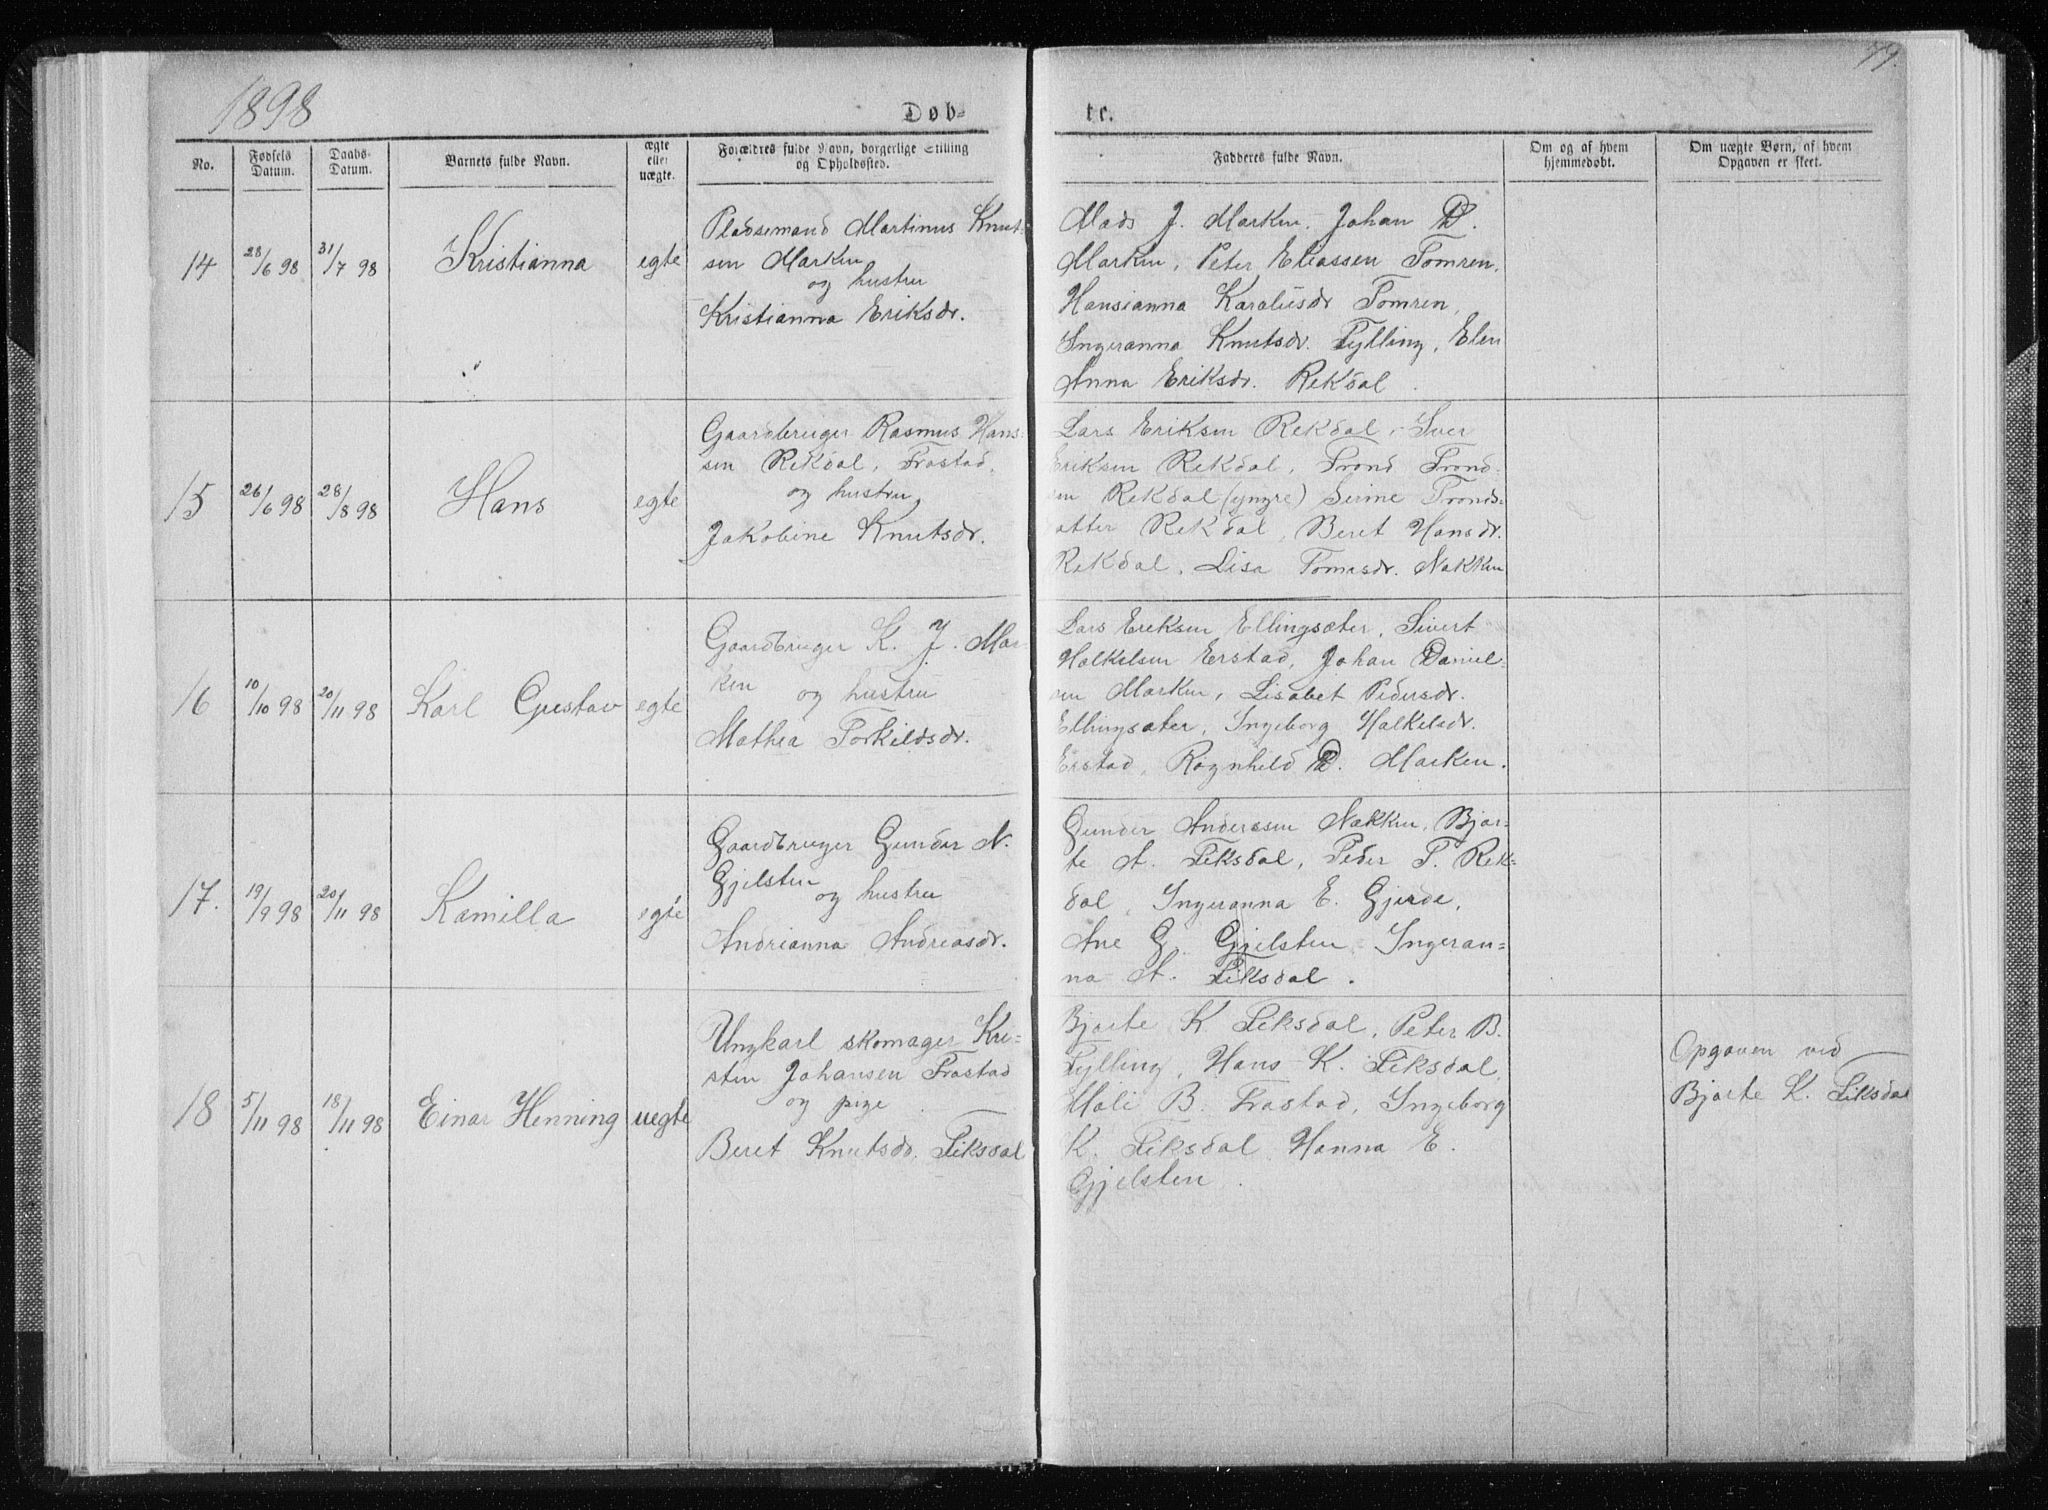 1898
Døb-
te.
No.
Fødsels Datum.
Daabs- Datum.
Barnets fulde Navn.
ægte eller uægte.
Forældres fulde Navn, borgerlige Stilling og Opholdssted.
Fadderes fulde Navn.
Om og af hvem hjemmedøbt.
Om uægte Børn, af hvem Opgaven er skeet.
14
28/6 98
31/7 98
Kristianna
egte
Pladsemand Martinus Knut-
sen Marken
og hustru
Kristianna Eriksdr.
Mads J. Marken, Johan D.
Marken, Peter Eliassen Tomren,
Hansianna Karolusdr Tomren,
Ingeranna Knutsdr. Tylling, Elen
Anna Eriksdr. Rekdal.
15
26/6 98
28/8 98
Hans
egte
Gaardbruger Rasmus Hans-
sen Rekdal, Frostad,
og hustru
Jakobine Knutsdr.
Lars Eriksen Rekdal, Iver
Eriksen Rekdal, Trond Trond-
sen Rekdal (yngre) Serine Tronds-
atter Rekdal, Beret Hansdr.
Rekdal, Lisa Tomasdr. Nakken
16
10/10 98
20/11 98
Karl Gustav
egte
Gaardbruger K. J. Mar-
ken og hustru
Mathea Torkildsdr.
Lars Eriksen Ellingsæter, Sivert
Halkelsen Erstad, Johan Daniel-
sen Marken, Lisabet Pedersdr.
Ellingsæter, Ingeborg Halkelsdr.
Erstad, Ragnhild D. Marken.
17.
19/9 98
20/11 98
Kamilla
egte
Gaardbruger Gunder N.
Gjelsten
og hustru
Andrianna Andreasdr.
Gunder Anderssen Nakken, Bjar-
te A. Fiksdal, Peder P. Rek-
dal, Ingeranna E. Gjerde,
Ane G. Gjelsten, Ingeran-
na A. Fiksdal.
18
5/11 98
18/11 98
Einar Henning
uegte
Ungkarl skomager Kri-
sten Johansen Frostad
og pige
Beret Knutsdr. Fiksdal
Bjarte K. Fiksdal, Peter B.
Tylling, Hans K. Fiksdal,
Mali B. Frostad, Ingeborg
K. Fiksdal, Hanna E.
Gjelsten.
Opgaven ved
Bjarte K. Fiksdal